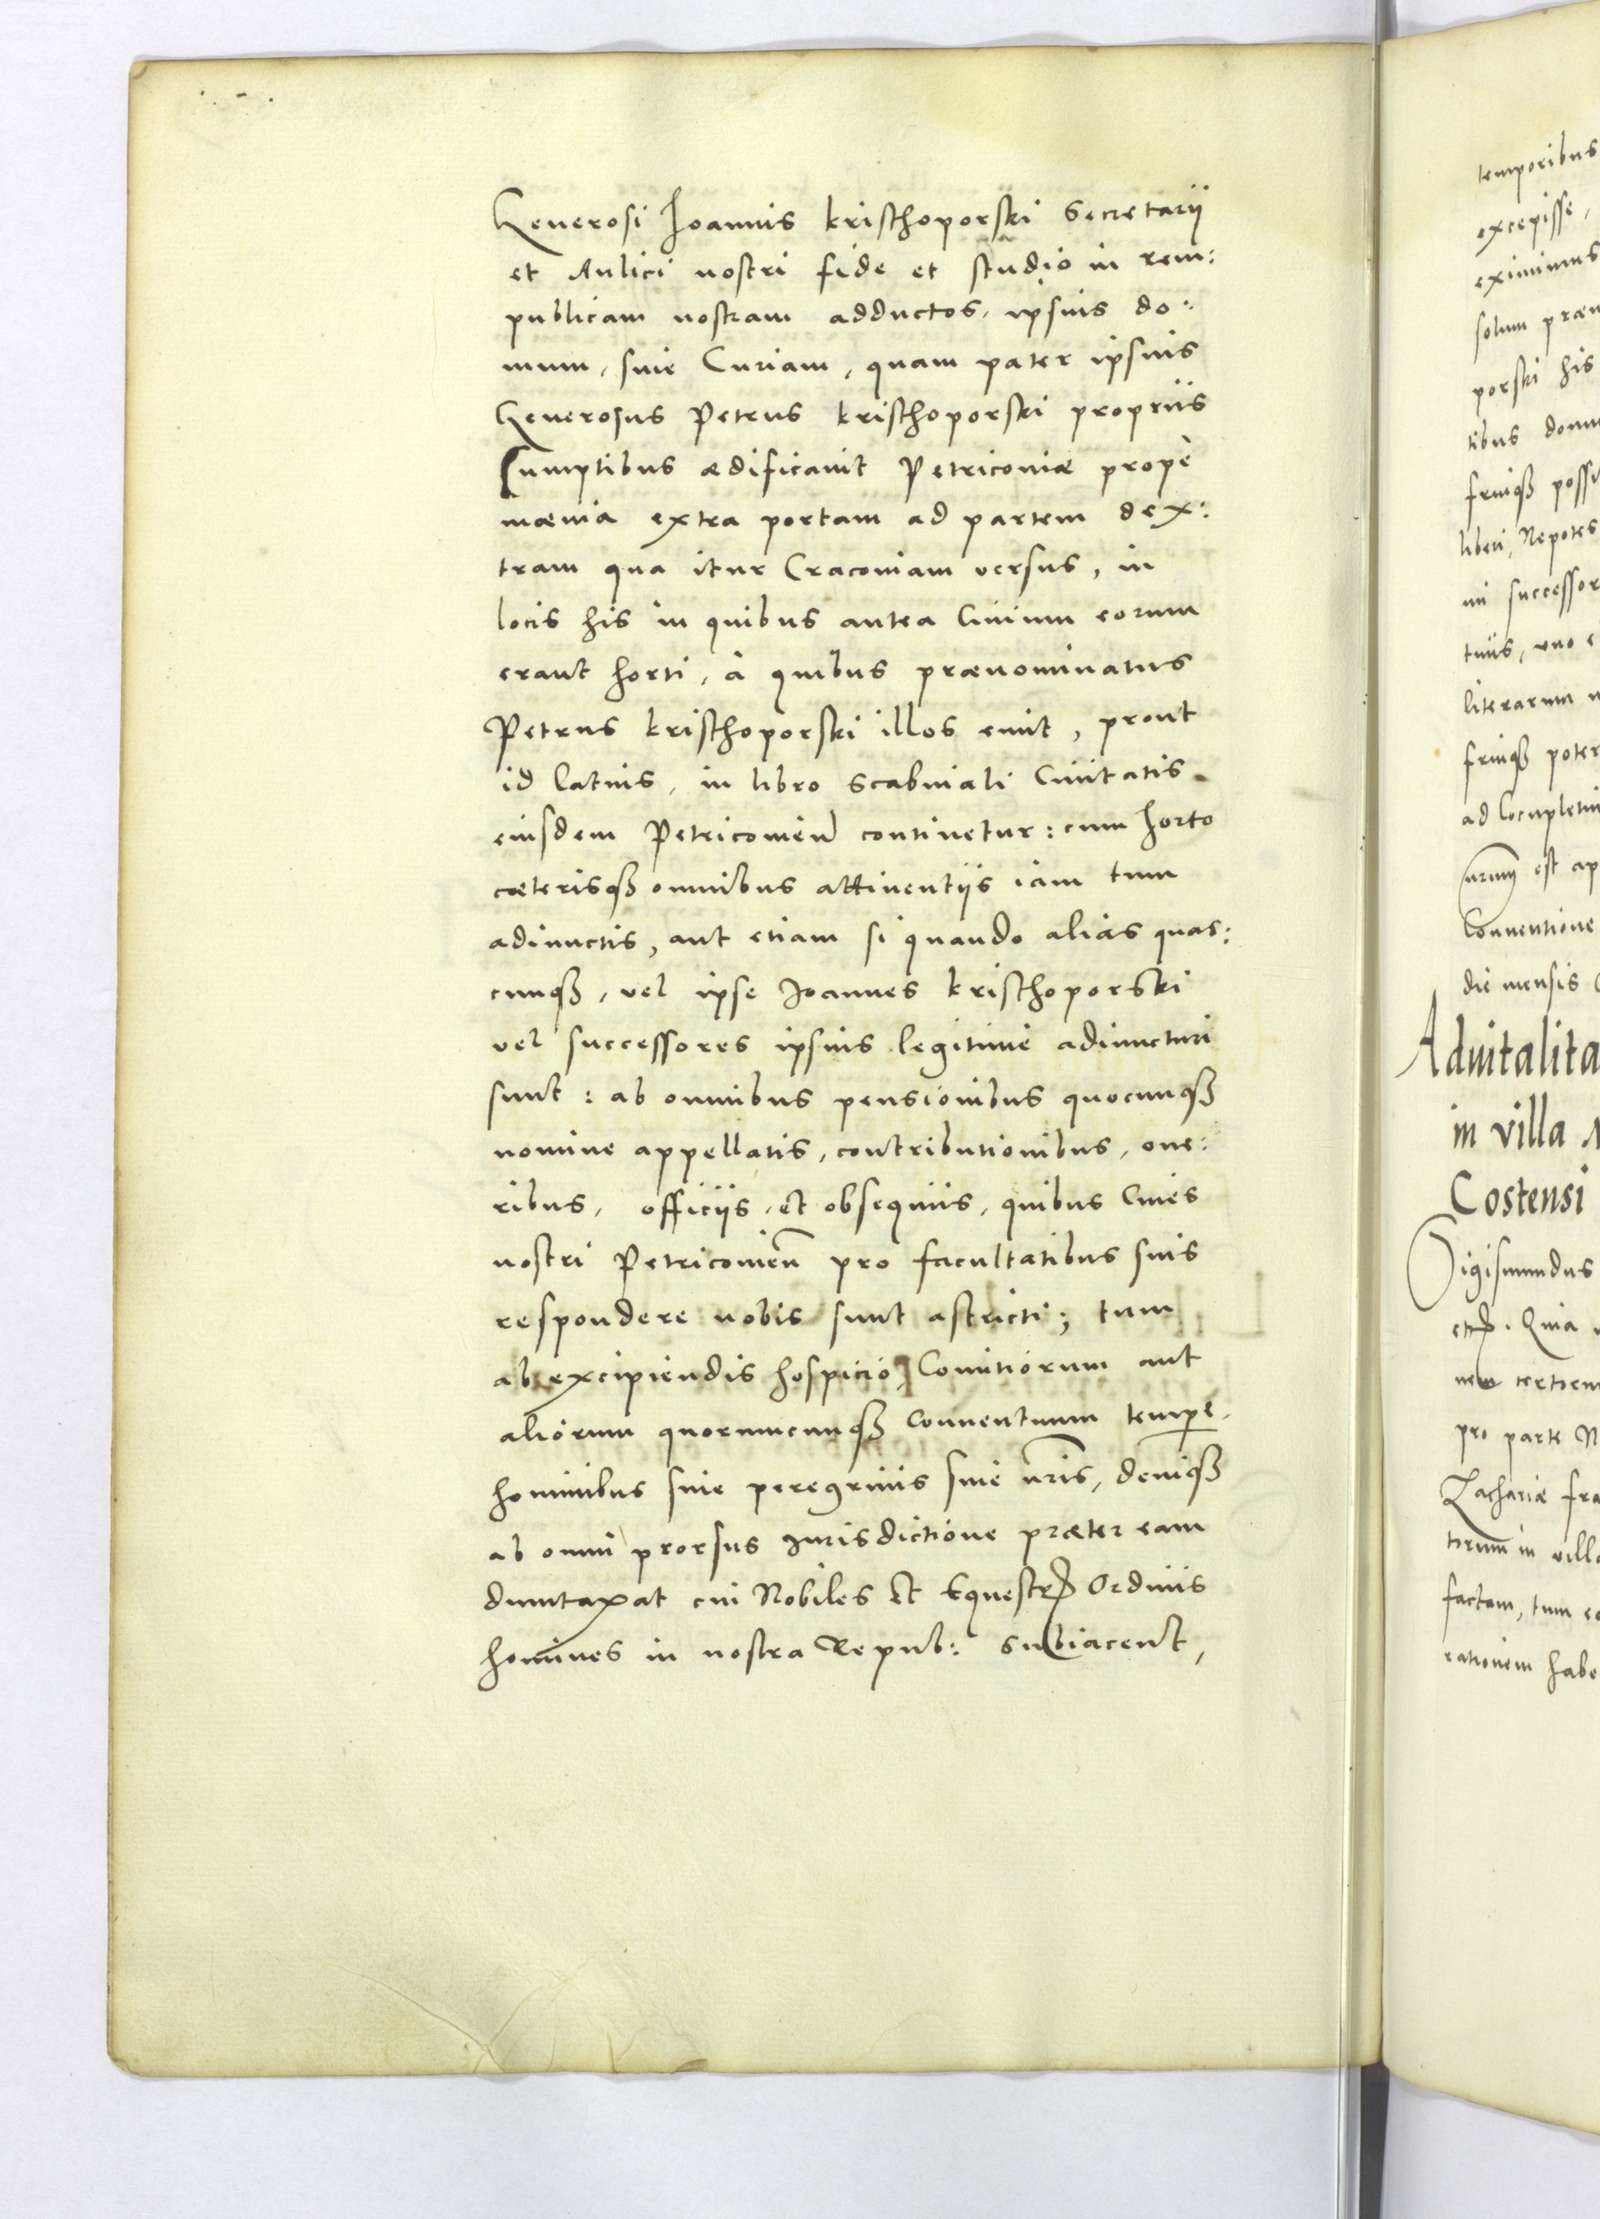 Generosi Joannis Krischoporski Secretarij
et Aulici nostri fide et studio in rem:
publicam nostram adductos, ipsius do:
mum, siue Curiam, quam pater ipsius
Generosus Petrus Krischoporski proprijs
Sumptibus ædificauit Petricouiæ propè
mænia extra portam ad partem dex:
tram qua itur Cracouiam versus, in
locis his in quibus antea Ciuium eorum
erant horti, à quibus prænominatus
Petrus Krischoporski illos emit, prout
id latius, in libro Scabinali Ciuitatis
eiusdem Petricouien̄ continetur: cum horto
cæterisqȝ omnibus attinentijs iam tum
adiunctis, aut etiam si quando alias quas:
cunqȝ, vel ipse Joannes Krischoporski
vel successores ipsius legitimè adiuncturi
sunt: ab omnibus pensionibus quocunqȝ
nomine appellatis, contributionibus, one:
ribus, officijs, et obsequijs, quibus Ciues
nostri Petricouien̄ pro facultatibus suis
respondere nobis sunt astricti; tum
ab excipiendis hospicio, Comitiorum aut
aliorum quorumcunqȝ Conuentuum tempe,
hominibus siue peregrinis siue nr̄is, deniqȝ
ab omni prorsus Jurisdictione præter eam
duntaxat cui Nobiles et Equestr̄ Ordinis
homines in nostra Repub: subiacent,
temporibus
excepisse,
eximimus
solum præn
porski his
tibus domu
fruiqȝ possi
liberi, Nepotes
mi successor
tuis, uno e
literarum
fruiqȝ poter
ad locupletiu
est ap
Conuentione
die mensis
Aduitalita
in villa
Costensi
Sigismundus
etc. Quia
pro parte N
Zachariæ fra
in villa
factam, tum
rationem habe